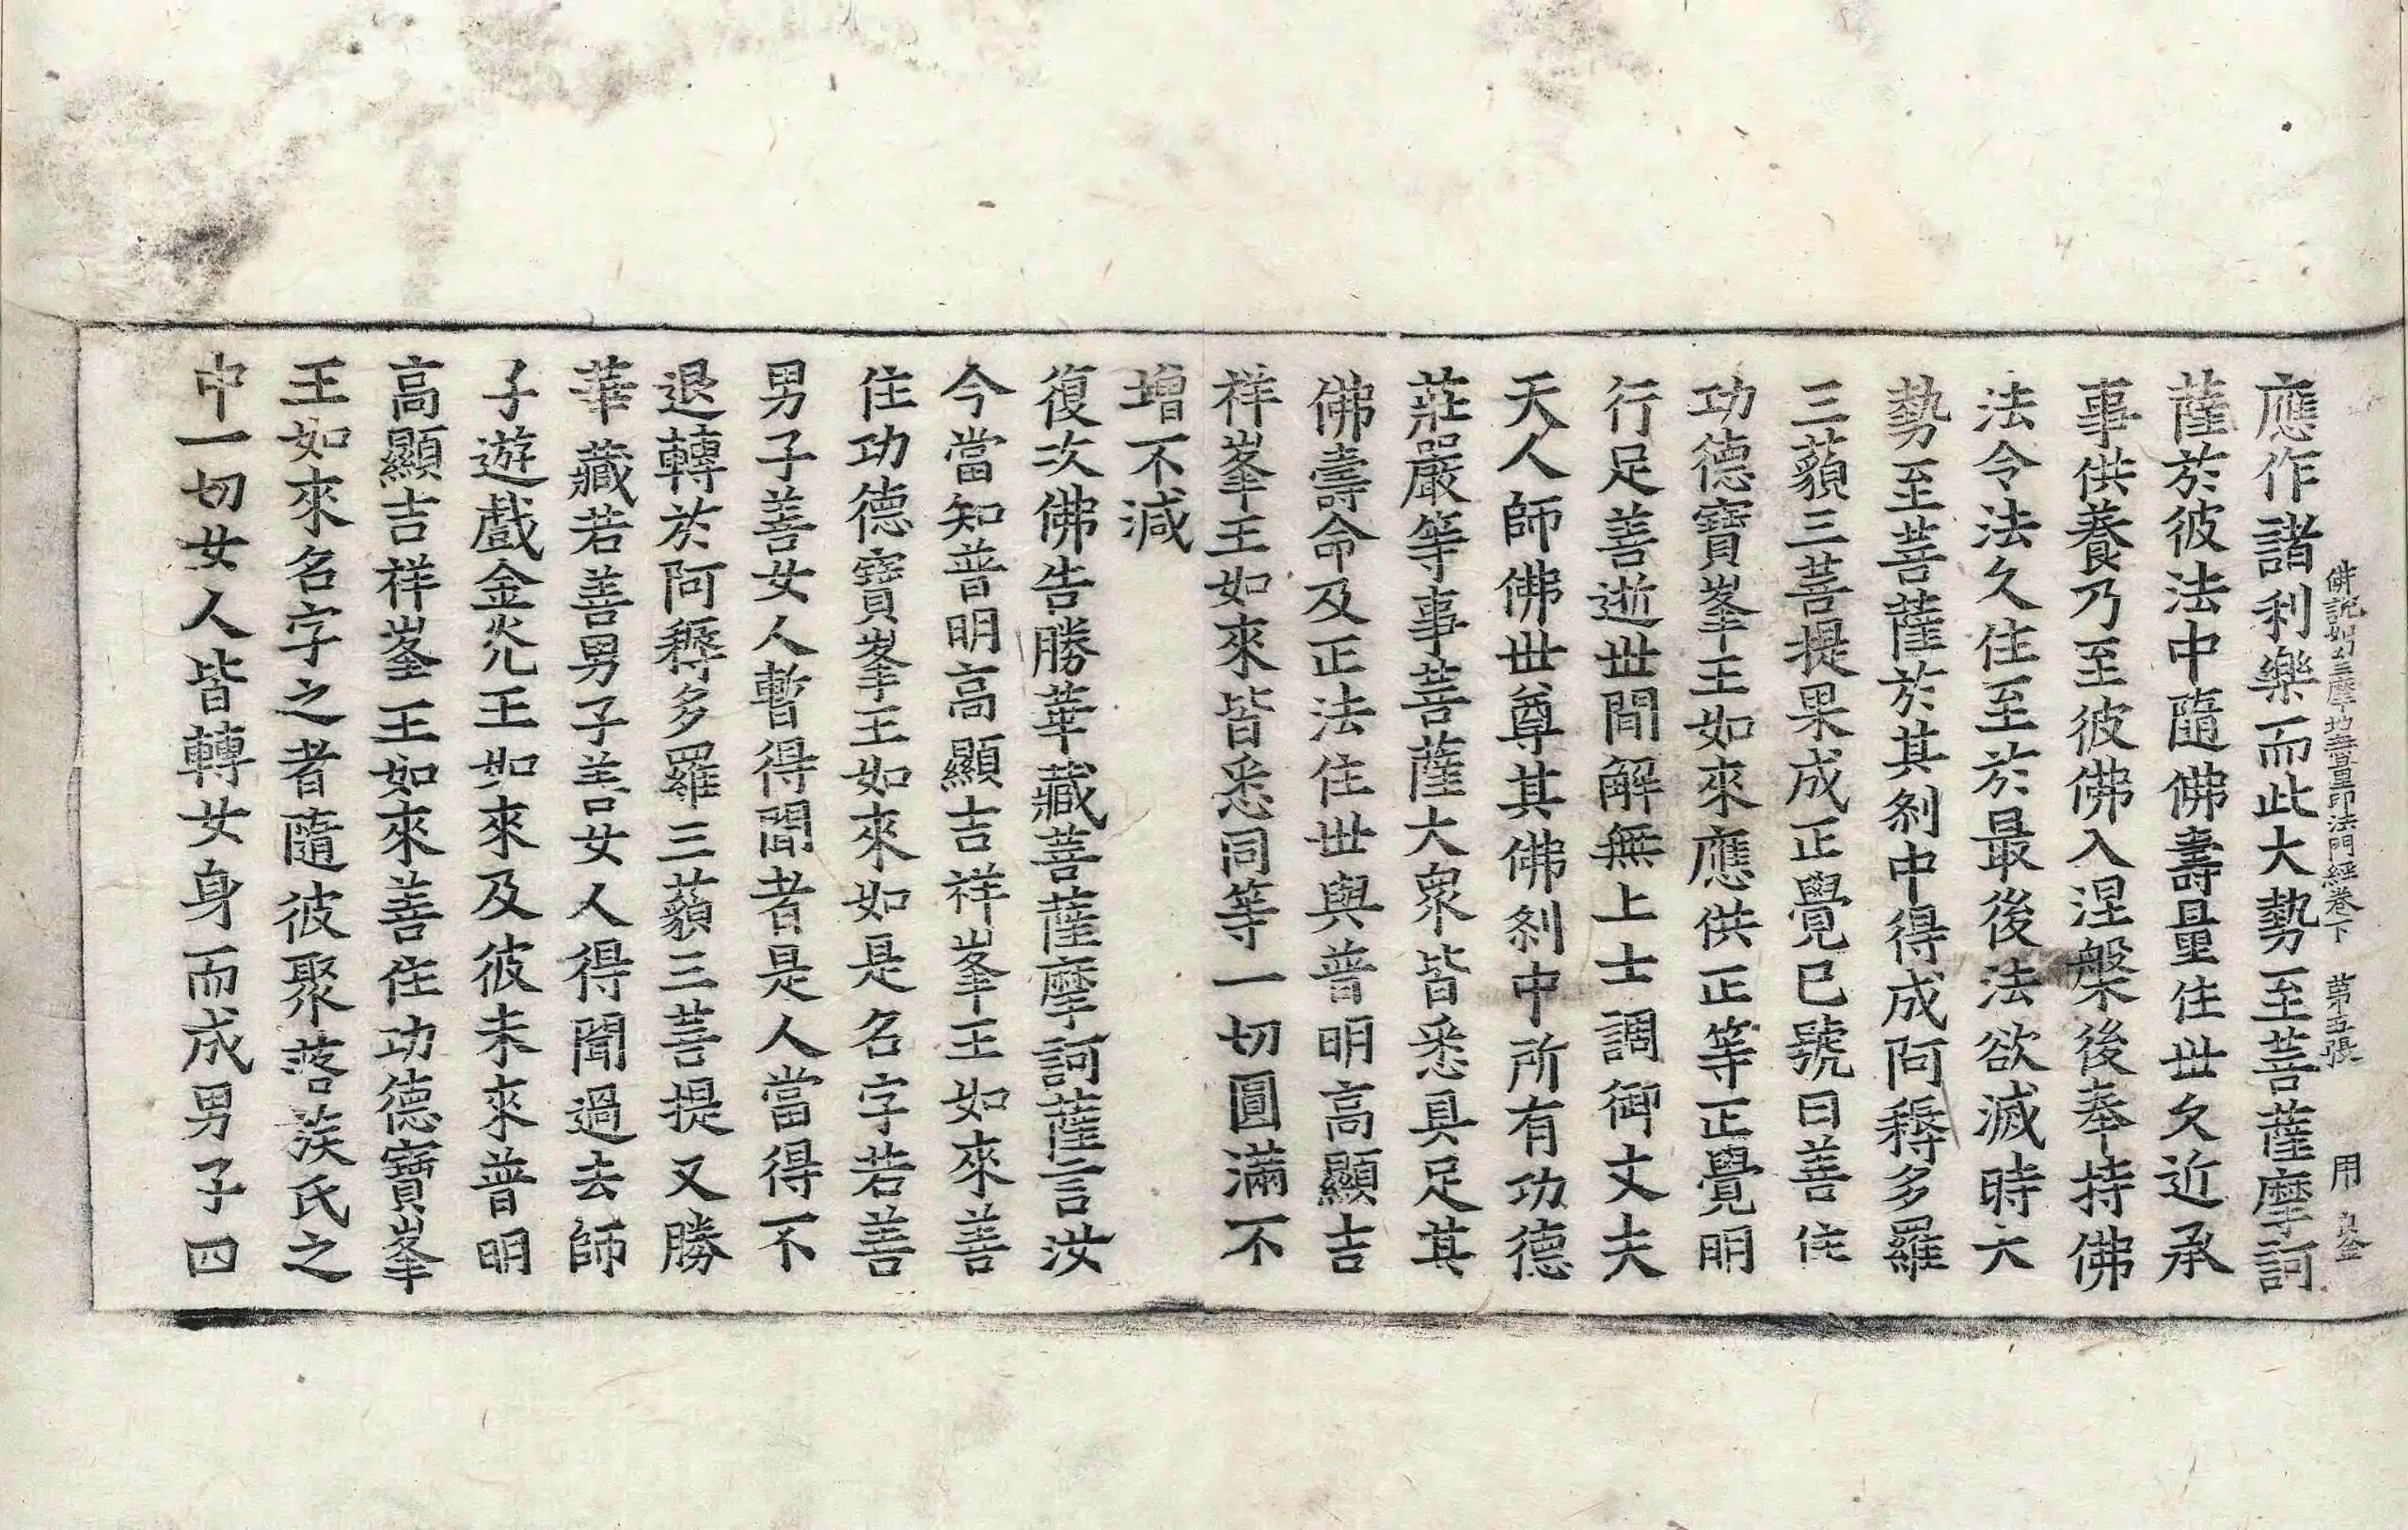 佛說如幻三摩地無量印法門經卷下　第五張　用
應作諸利樂而此大勢至菩薩摩訶
薩於彼法中隨佛壽量住世久近承
事供養乃至彼佛入涅槃後奉持佛
法令法久住至於最後法欲滅時大
勢至菩薩於其剎中得成阿耨多羅
三藐三菩提果成正覺已號曰善住
功德寶峯王如來應供正等正覺明
行足善逝世間解無上士調御丈夫
天人師佛世尊其佛剎中所有功德
莊嚴等事菩薩大衆皆悉具足其
佛壽命及正法住世與普明高顯吉
祥峯王如來皆悉同等一切圓滿不
增不減
復次佛告勝華藏菩薩摩訶薩言汝
今當知普明高顯吉祥峯王如來善
住功德寶峯王如來如是名字若善
男子善女人暫得聞者是人當得不
退轉於阿耨多羅三藐三菩提又勝
華藏若善男子善女人得聞過去師
子遊戲金光王如來及彼未來普明
高顯吉祥峯王如來善住功德寶峯
王如來名字之者隨彼聚落族氏之
中一切女人皆轉女身而成男子四